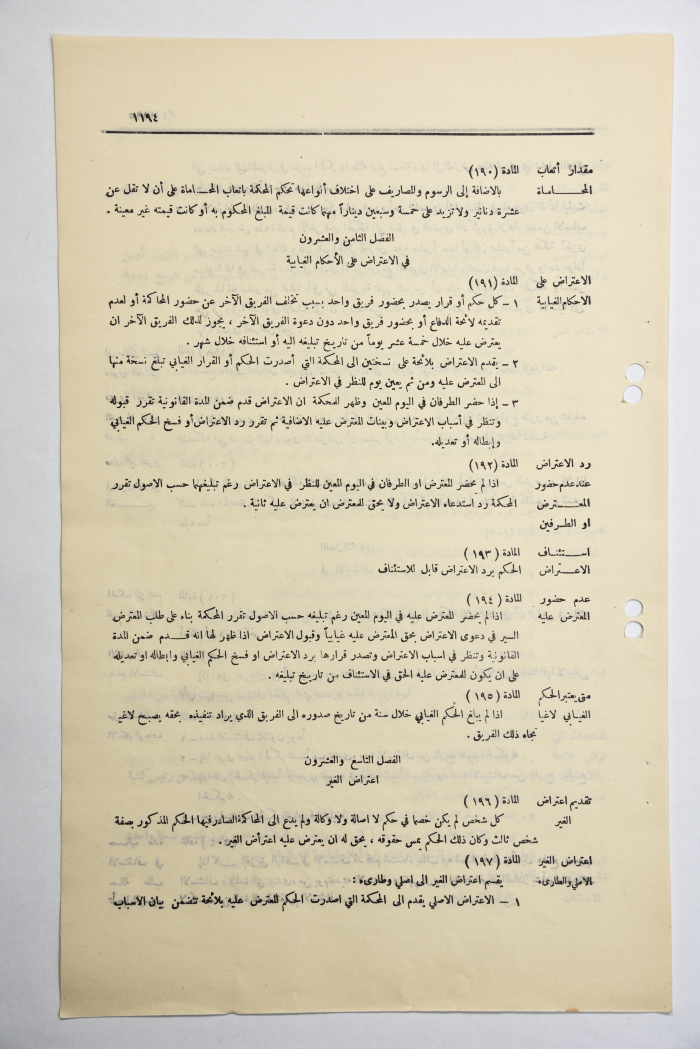 ١١٩٤
مقدار أتعاب المادة (١٩٠)
المحـــاماة بالاضافة إلى الرسوم والمصاريف على اختلاف أنواعها تحكم المحكمة باتعاب المحــاماة على أن لا تقل عن
عشرة دنانير ولا تزيد على خمسة وسبعين ديناراً مهما كانت قيمة المبلغ المحكوم به أو كانت قيمته غير معينة .
الفصل الثامن والعشرون
في الاعتراض على الأحكام الغيابية
الاعتراض على المادة (١٩١)
الاحكام الغيابية ١ - كل حكم أو قرار يصدر بحضور فريق واحد بسبب تخلف الفريق الآخر عن حضور المحاكمة أو لعدم
تقديمه لائحة الدفاع أو بحضور فريق واحد دون دعوة الفريق الآخر ، يجوز لذلك الفريق الآخر ان
يعترض عليه خلال خمسة عشر يوماً من تاريخ تبليغه اليه أو استئنافه خلال شهر .
٢ - يقدم الاعتراض بلائحة على نسختين الى المحكمة التي أصدرت الحكم أو القرار الغيابي تبلغ نسخة منها
الى المعترض عليه ومن ثم يعين يوم للنظر في الاعتراض .
٣ - إذا حضر الطرفان في اليوم المعين وظهر للمحكمة ان الاعتراض قدم ضمن المدة القانونية تقرر قبوله
وتنظر في أسباب الاعتراض وبينات المعترض عليه الاضافية ثم تقرر رد الاعتراض أو فسخ الحكم الغيابي
وإبطاله أو تعديله.
رد الاعتراض المادة (١٩٢)
عند عدم حضور اذا لم يحضر المعترض او الطرفان في اليوم المعين للنظر في الاعتراض رغم تبليغهما حسب الاصول تقرر
المعــترض المحكمة رد استدعاء الاعتراض ولا يحق للمعترض ان يعترض عليه ثانية .
او الطرفين
استــئناف المادة (١٩٣)
الاعتراض الحكم برد الاعتراض قابل للاستئناف
عدم حضور المادة (١٩٤)
المعترض عليه اذا لم يحضر المعترض عليه في اليوم المعين رغم تبليغه حسب الاصول تقرر المحكمة بناء على طلب المعترض
السير في دعوى الاعتراض بحق المعترض عليه غيابياً وقبول الاعتراض اذا ظهر لها انه قــدم ضمن المدة
القانونية وتنظر في اسباب الاعتراض وتصدر قرارها برد الاعتراض او فسخ الحكم الغيابي وإبطاله او تعديله
على ان يكون للمعترض عليه الحق في الاستئناف من تاريخ تبليغه .
متى يعتبر الحكم المادة (١٩٥)
الغيــابي لاغيا اذا لم يبلغ الحكم الغيابي خلال سنة من تاريخ صدوره الى الفريق الذي يراد تنفيذه بحقه يصبح لاغياً
تجاه ذلك الفريق .
الفصل التاسع والعشرون
اعتراض الغير
تقديم اعتراض المادة (١٩٦)
الغير كل شخص لم يكن خصما في حكم لا اصالة ولا وكالة ولم يدع الى المحاكمة الصادر فيها الحكم المذكور بصفة
شخص ثالث وكان ذلك الحكم يمس حقوقه ، يحق له ان يعترض عليه اعتراض الغير .
اعتراض الغير المادة (١٩٧)
الاصلي والطارىء يقسم اعتراض الغير الى اصلي وطارىء :
١ - الاعتراض الاصلي يقدم الى المحكمة التي اصدرت الحكم المعترض عليه بلائحة تتضمن بيان الأسباب